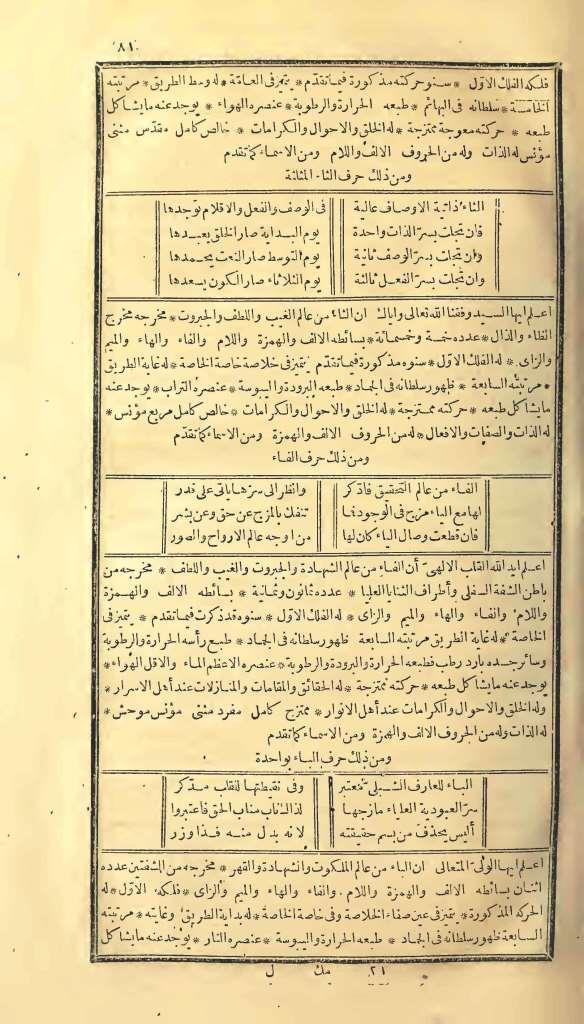 ٨١
فلكه الفلك الاول * سنو حركته مذكورة فيما تقدم * يتميز فى العامة * له وسط الطريق * مرتبته
الخامسة * سلطانه فى البهائم * طبعه الحرارة والرطوبة * عنصره الهواء * يوجد عنه ما يشاكل
طبعه * حركته معوجة ممتزجة * له الخلق والاحوال والكرامات * خالص كامل مقدس مثنى
مؤنس له الذات وله من الحروف الالف واللام ومن الاسماء كما تقدم
ومن ذلك حرف الثاء المثلثة
الثاء ذاتية الاوصاف عالية فى الوصف والفعل والاقلام توجدها
فان تجلت بسر الذات واحدة يوم البداية صار الخلق يعبدها
وان تجلت بسر الوصف ثانية يوم التوسط صار النعت يحمدها
وان تجلت بسر الفعل ثالثة يوم الثلاثاء صار الكون يسعدها
اعلم ايها السيد وفقنا الله تعالى واياك ان الثاء من عالم الغيب واللطف والجبروت * مخرجه مخرج
الظاء والذال * عدده خمسة وخمسمائة * بسائطه الالف والهمزة واللام والفاء والهاء والميم
والزاى * له الفلك الاول * سنوه مذكورة فيما تقدم يتميز فى خلاصة خاصة الخاصة * له غاية الطريق
* مرتبته السابعة * ظهور سلطانه فى الجماد * طبعه البرودة واليبوسة * عنصره التراب * يوجد عنه
ما يشاكل طبعه * حركته ممتزجة * له الخلق والاحوال والكرامات * خالص كامل مربع مؤنس *
له الذات والصفات والافعال * له من الحروف الالف والهمزة ومن الاسماء كما تقدم
ومن ذلك حرف الفاء
الفاء من عالم التحقيق فادكر وانظر الى سرها ياتى على قدر
لها مع الياء مزج فى الوجود فما تنفك بالمزج عن حق وعن بشر
فان قطعت وصال الياء كان لها من اوجه عالم الارواح والصور
اعلم ايد الله القلب الالهى أن الفاء من عالم الشهادة والجبروت والغيب واللطف * مخرجه من
باطن الشفة السفلى وأطراف الثنايا العليا * عدده ثمانون وثمانية * بسائطه الالف والهمزة
واللام والفاء والهاء والميم والزاى * له الفلك الاول * سنوه قد ذكرت فيما تقدم * يتميز فى
الخاصة * له غاية الطريق مرتبته السابعة ظهور سلطانه فى الجماد * طبع رأسه الحرارة والرطوبة
وسائر جسده بارد رطب فطبعه الحرارة والبرودة والرطوبة * عنصره الاعظم الماء والاقل الهواء *
يوجد عنه ما يشاكل طبعه * حركته ممتزجة * له الحقائق والمقامات والمنازلات عند أهل الاسرار *
وله الخلق والاحوال والكرامات عند أهل الانوار * ممتزج كامل مفرد مثنى مؤنس موحش *
له الذات وله من الحروف الالف والهمزة ومن الاسماء كما تقدم
ومن ذلك حرف الباء بواحدة
الباء للعارف الشبلى معتبر وفى نقيطتها للقلب مدكر
سر العبودية العلياء مازجها لذاك ناب مناب الحق فاعتبروا
أليس يحذف من بسم حقيقته لانه بدل منه فذا وزر
اعلم ايها الولى المتعالى ان الباء من عالم الملكوت والشهادة والقهر * مخرجه من الشفتين عدده
اثنان بسائطه الالف والهمزة واللام والفاء والهاء والميم والزاى * فلكه الاول * له
الحركة المذكورة * يتميز فى عين صفاء الخلاصة وفى خاصة الخاصة * له بداية الطريق وغايته * مرتبته
السابعة ظهور سلطانه فى الجماد * طبعه الحرارة واليبوسة * عنصره النار * يوجد عنه ما يشاكل
٢١ مك ل